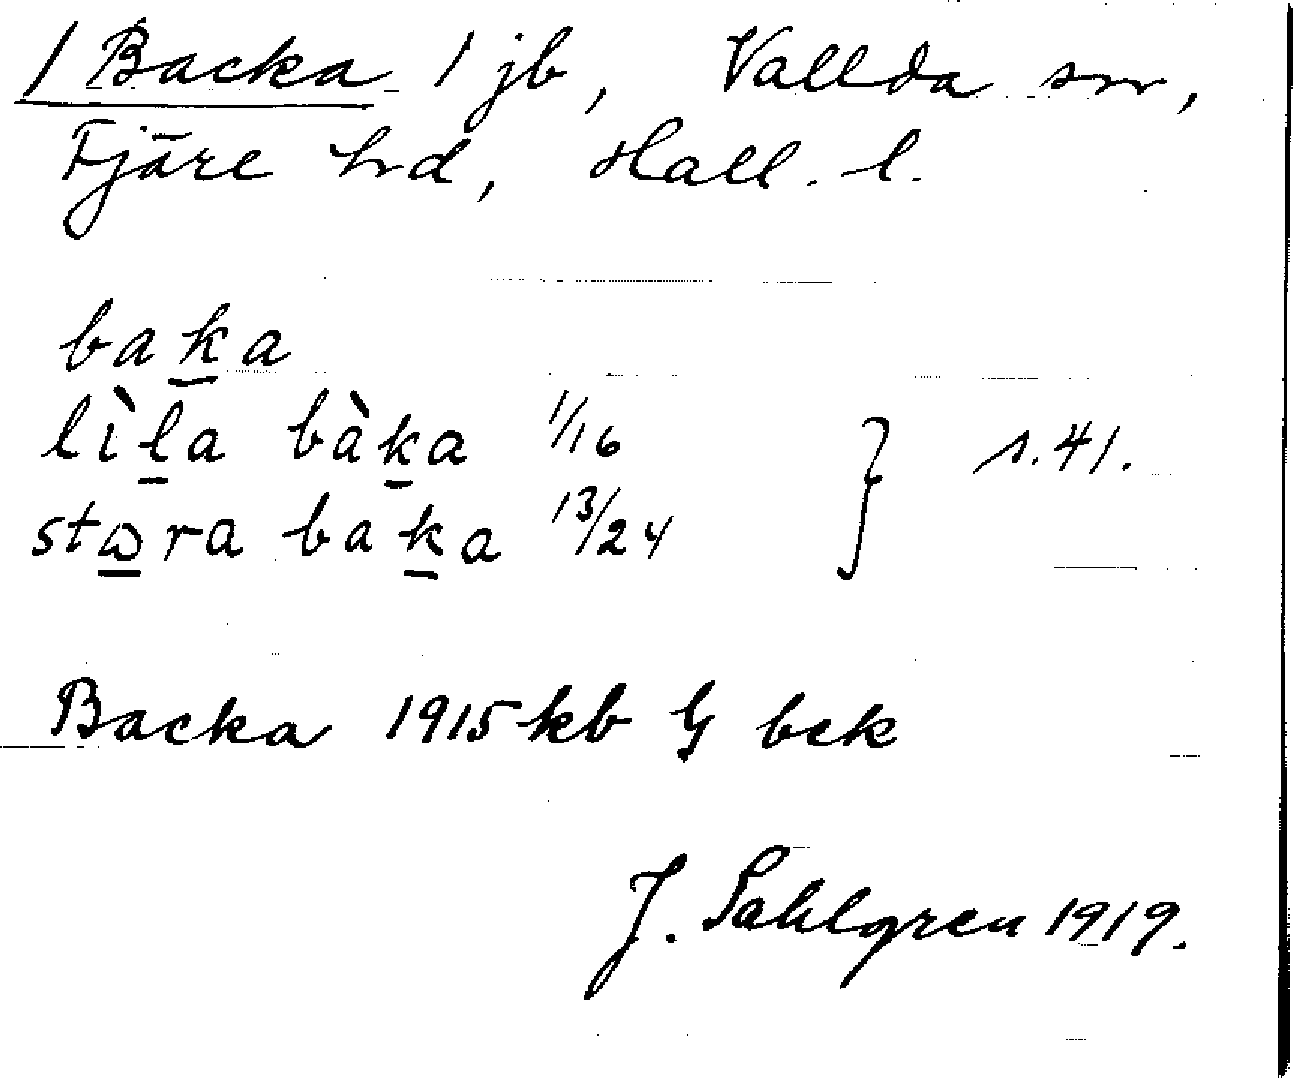 / Backa 1 jb, Vallda sn,
Fjäre hd, Hall. l.
baka
lìla bàka 1/16 } s. 41.
stora baka 13/24
Backa 1915 kb G bek
J. Sahlgren 1919.